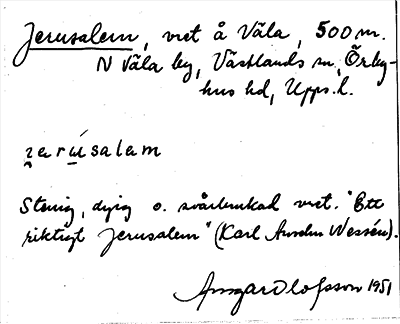 Jerusalem, vret å Väla, 500 m.
N Väla by, Västlands sn, Örby-
hus hd, Upps. l.
jerúsalem
Stenig, dyig o. svårbrukad vret. "Ett
riktigt Jerusalem" (Karl Anders Wessén).
Ansgar Olofsson 1951